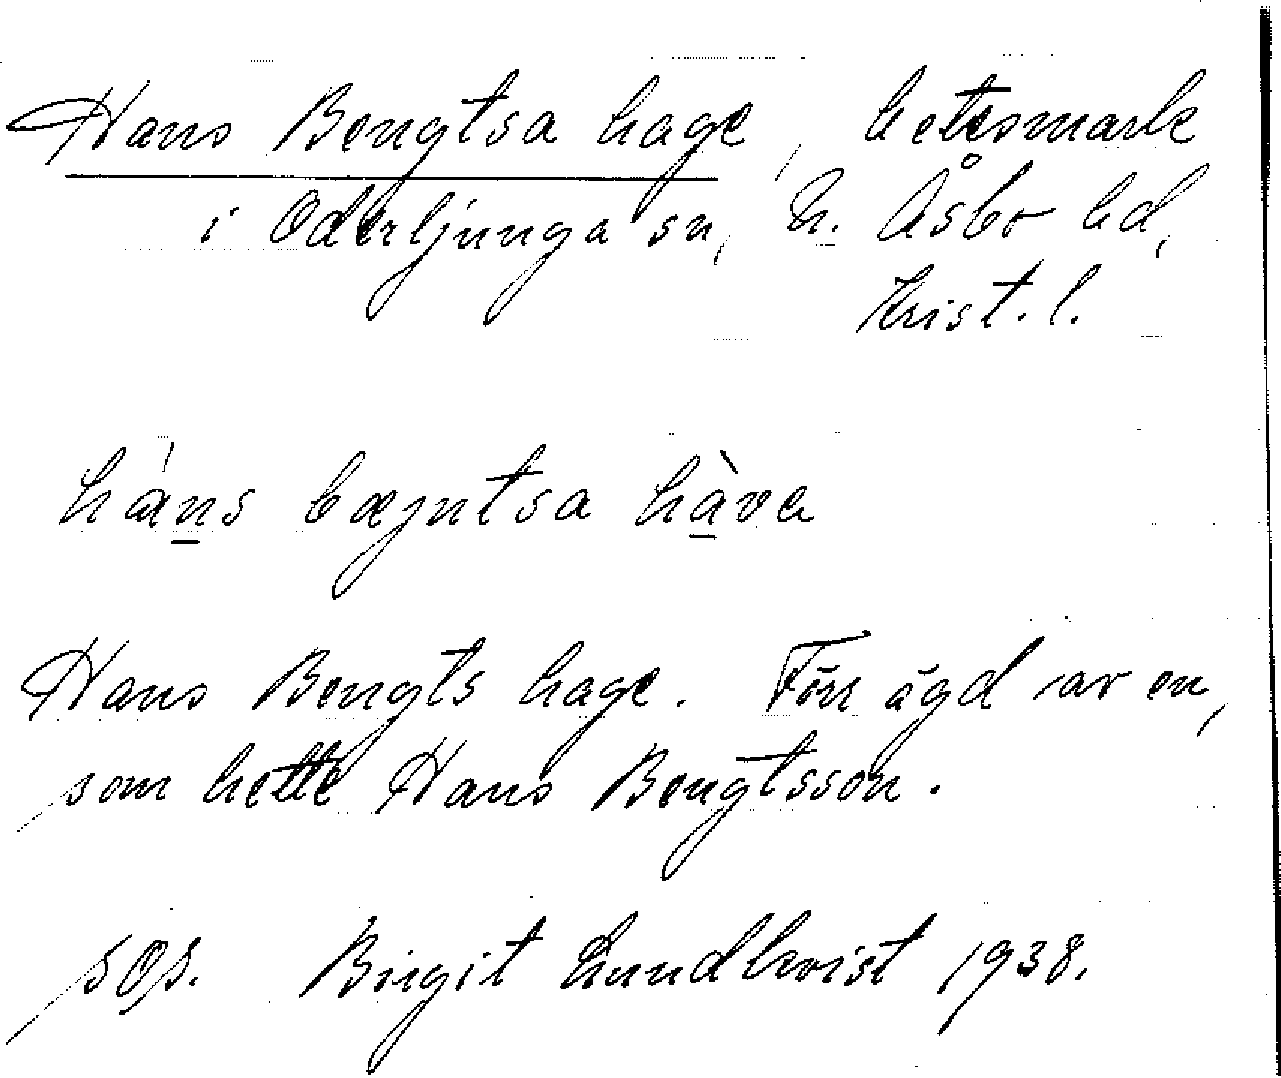 Hans Bengtsa hage, betesmark
i Oderljunga sn, N. Åsbo hd,
Krist. l.
háns bæjntsa hàva
Hans Bengts hage. Förr ägd av en,
som hette Hans Bengtsson.
sOs. Birgit Lundkvist 1938.